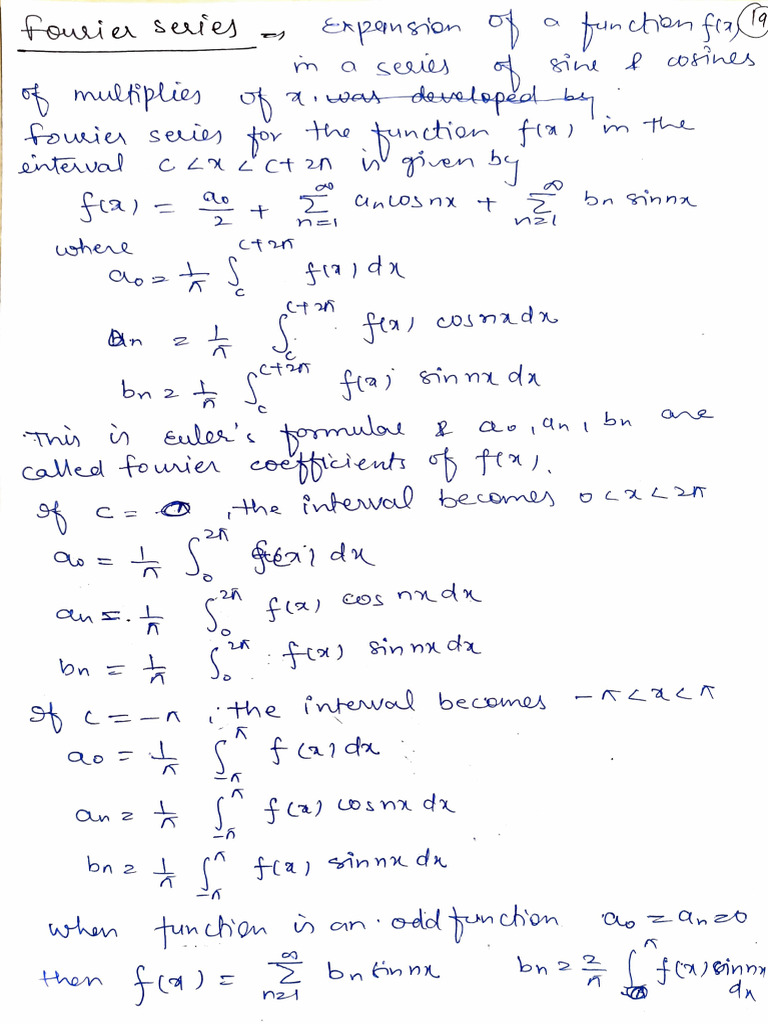 Fourier series → Expansion of a function f(x) 19
in a series of sine & cosines
of multiplies of x. was developed by
fourier series for the function f(x) in the
interval c < x < c+2π is given by
f(x) = a₀/2 + ∑_{n=1}^{∞} aₙ cos nx + ∑_{n=1}^{∞} bₙ sin nx
where
a₀ = 1/π ∫_c^{c+2π} f(x) dx
aₙ = 1/π ∫_c^{c+2π} f(x) cos nx dx
bₙ = 1/π ∫_c^{c+2π} f(x) sin nx dx
This is Euler's formulae & a₀, aₙ, bₙ are
called fourier coefficients of f(x).
If c = 0, the interval becomes 0 < x < 2π
a₀ = 1/π ∫_0^{2π} f(x) dx
aₙ = 1/π ∫_0^{2π} f(x) cos nx dx
bₙ = 1/π ∫_0^{2π} f(x) sin nx dx
If c = -π, the interval becomes -π < x < π
a₀ = 1/π ∫_{-π}^{π} f(x) dx
aₙ = 1/π ∫_{-π}^{π} f(x) cos nx dx
bₙ = 1/π ∫_{-π}^{π} f(x) sin nx dx
when function is an odd function a₀ = aₙ = 0
then f(x) = ∑_{n=1}^{∞} bₙ sin nx bₙ = 2/π ∫_0^{π} f(x) sin nx dx